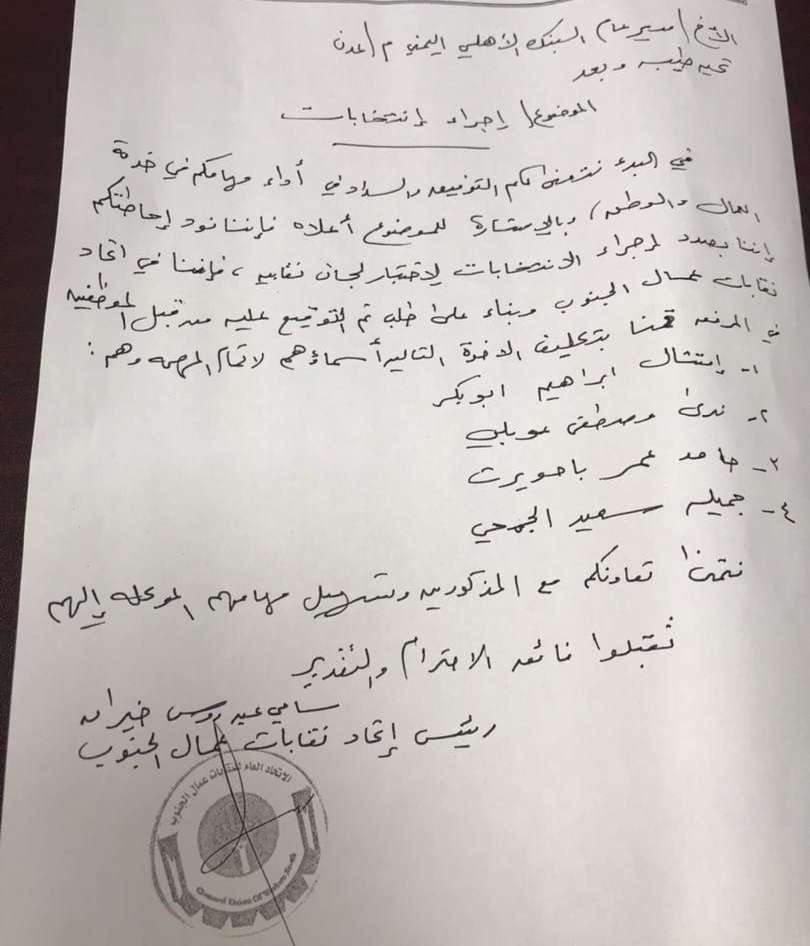 الأخ / مدير عام البنك الأهلي اليمني م/عدن
تحيه طيبه وبعد
الموضوع / إجراء إنتخابات
في البدء نتمنى لكم التوفيق والسداد في أداء مهامكم في خدمة
العمال والوطن، وبالإشارة للموضوع أعلاه فإننا نود إحاطتكم
إننا بصدد إجراء الانتخابات لاختيار لجان نقابيه، فإننا في اتحاد
نقابات عمال الجنوب وبناء على طلب تم التوقيع عليه من قبل الموظفين
في المرفق قمنا بتكليف الاخوة التاليه أسماؤهم لاتمام المهمه وهم:
١- إمتثال ابراهيم ابوبكر
٢- ندى مصطفى عوبلي
٣- حامد عمر باحويرث
٤- جميله سعيد الجمحي
نتمنا تعاونكم مع المذكورين وتسهيل مهامهم الموكله إليهم
تقبلوا فائق الاحترام والتقدير
سامي عيدروس خيران
رئيس إتحاد نقابات عمال الجنوب
الاتحاد العام لنقابات عمال الجنوب
General Union Of Workers South